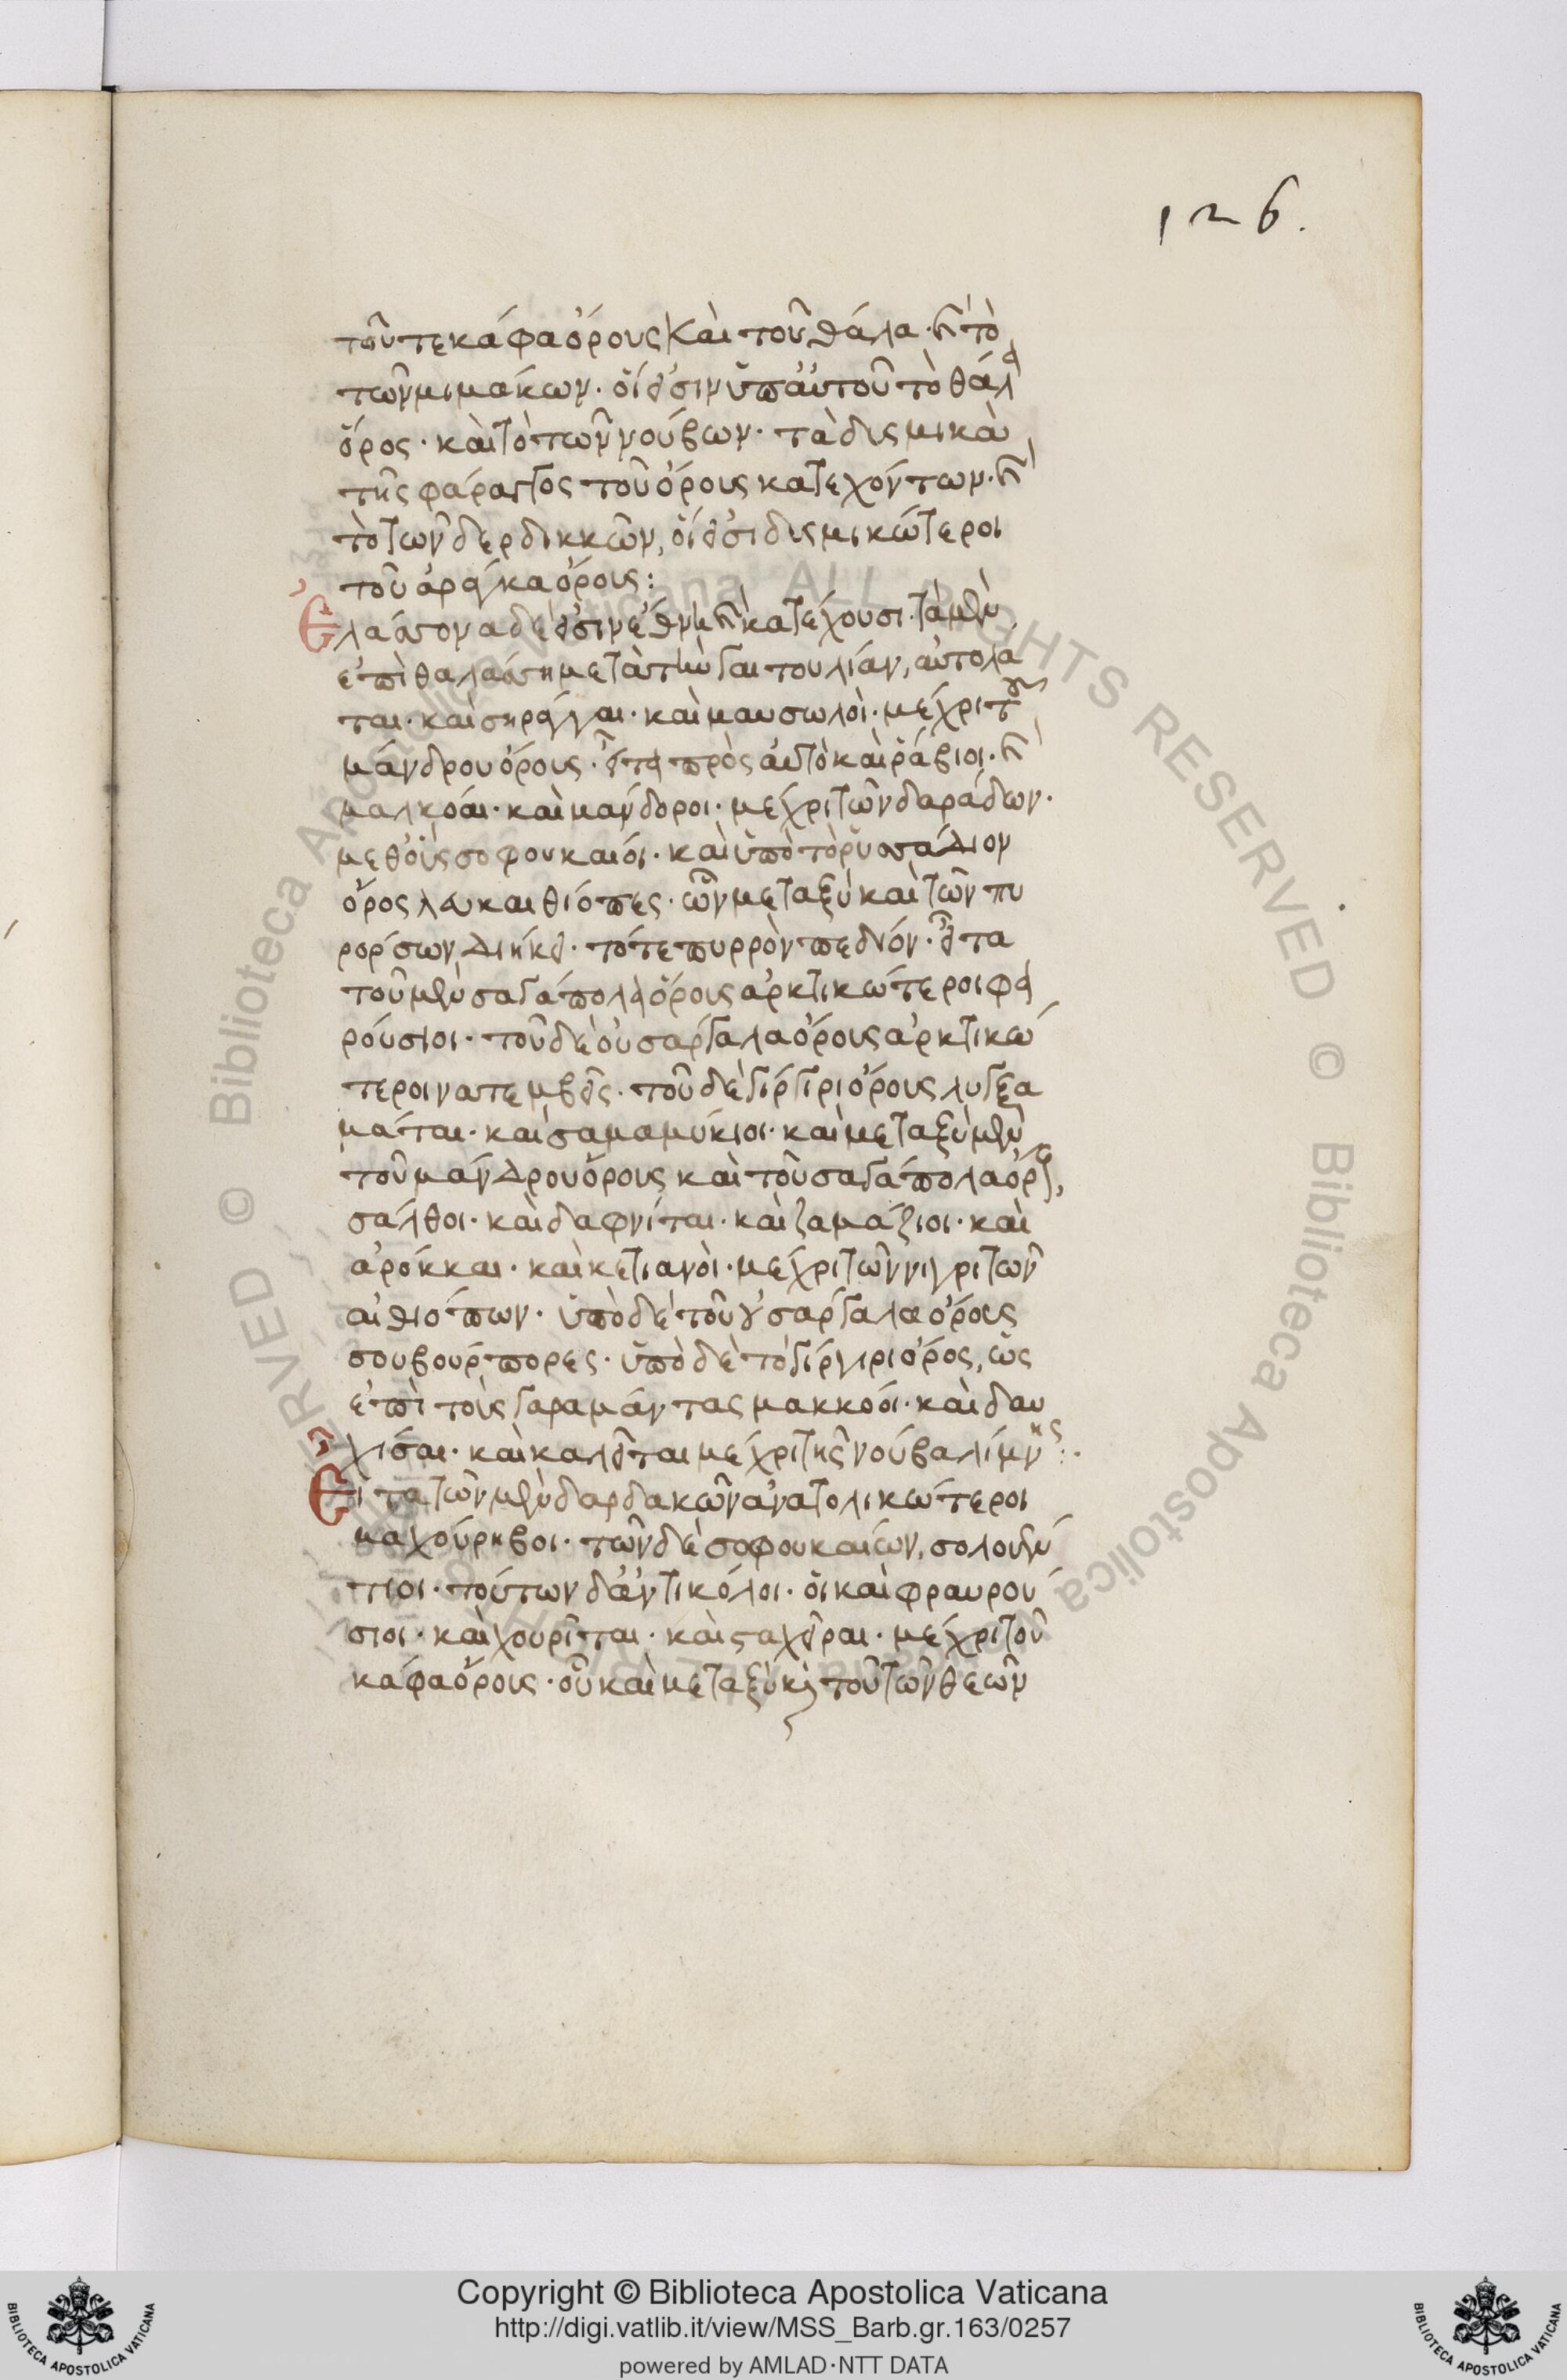 126.
τοῦ τε κάφα ὄρους καὶ τοῦ θάλα· καὶ τὸ
τῶν μιμακῶν· οἵ εἰσιν ὑπ' αὐτοῦ τὸ θάλα
ὄρος· καὶ τὸ τῶν νούβων· τὰ δυσμικὰ
τῆς φάραγγος τοῦ ὄρους κατεχόντων· καὶ
τὸ τῶν δερδικκῶν, οἵ εἰσι δυσμικώτεροι
τοῦ ἀράγκα ὄρους:
Ἐλάττονα δέ εἰσιν ἔθνη καὶ κατέχουσι· τὰ μὲν
ἐπὶ θαλάσσῃ μετὰ τὴν γαιτουλίαν, αὐτολα
ται· καὶ σηράγγαι· καὶ μαυσωλοὶ· μέχρι τοῦ
μάνδρου ὄρους· εἶτα πρὸς αὐτὸ καὶ ῥάβιοι· καὶ
μαλκόαι· καὶ μάνδοροι· μέχρι τῶν δαράδων·
μεθ' οὓς σοφουκαιόι· καὶ ὑπὸ τὸ ῥυσσάδιον
ὄρος λευκαιθιόπες· ὧν μεταξὺ καὶ τῶν πυ
ρορέσων διήκει· τό τε πυρρὸν πεδίον· εἶτα
τοῦ μὲν σαγάπολα ὄρους ἀρκτικώτεροι φα
ρούσιοι· τοῦ δὲ οὐσαργαλα ὄρους ἀρκτικώ
τεροι νατεμβεῖς· τοῦ δὲ γιργιρι ὄρους λυγξα
μάται· καὶ σαμαμύκιοι· καὶ μεταξὺ μὲν
τοῦ μάνδρου ὄρους καὶ τοῦ σαγάπολα ὄρους,
σάλθοι· καὶ δαφνίται· καὶ ζαμάζιοι· καὶ
ἀρόκκαι· καὶ κετιανοὶ· μέχρι τῶν νιγριτῶν
αἰθιόπων· ὑπὸ δὲ τοῦ ὐσαργαλα ὄρους
σουβούρπορες· ὑπὸ δὲ τὸ γίργιρι ὄρος, ὡς
ἐπὶ τοὺς γαραμάντας μακκόοι· καὶ δαυ
χίσαι· καὶ καλεῖται μέχρι τῆς νούβα λίμνης:·
Εἶτα τῶν μὲν δαρδακῶν ἀνατολικώτεροι
μαχούρηβοι· τῶν δὲ σοφουκαιέων, σολουέν
τιοι· τούτων δ' ἀντικόλοι· οἳ καὶ φραυρου
σιοι· καὶ χουρῖται· καὶ σταχεῖραι· μέχρι τοῦ
κάφα ὄρους· οὗ καὶ μεταξὺ καὶ τοῦ τῶν θεῶν
Copyright © Biblioteca Apostolica Vaticana
http://digi.vatlib.it/view/MSS_Barb.gr.163/0257
powered by AMLAD·NTT DATA